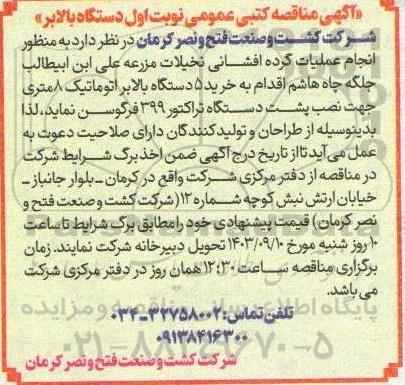 «آگهی مناقصه کتبی عمومی نوبت اول دستگاه بالابر»
شرکت کشت و صنعت فتح و نصر کرمان در نظر دارد به منظور
انجام عملیات گرده افشانی نخیلات مزرعه علی ابن ابیطالب
جلگه چاه هاشم اقدام به خرید ۵ دستگاه بالابر اتوماتیک ۸ متری
جهت نصب پشت دستگاه تراکتور ۳۹۹ فرگوسن نماید، لذا
بدینوسیله از طراحان و تولیدکنندگان دارای صلاحیت دعوت به
عمل می آید تا از تاریخ درج آگهی ضمن اخذ برگ شرایط شرکت
در مناقصه از دفتر مرکزی شرکت واقع در کرمان ـ بلوار جانباز ـ
خیابان ارتش نبش کوچه شماره ۱۲ (شرکت کشت و صنعت فتح و
نصر کرمان) قیمت پیشنهادی خود را مطابق برگ شرایط تا ساعت
۱۰ روز شنبه مورخ ۱۴۰۳/۰۹/۱۰ تحویل دبیرخانه شرکت نمایند. زمان
برگزاری مناقصه ساعت ۱۲:۳۰ همان روز در دفتر مرکزی شرکت
می باشد.
تلفن تماس: ۳۲۷۵۸۰۰۲-۰۳۴
۰۹۱۳۸۴۱۶۳۰۰
شرکت کشت و صنعت فتح و نصر کرمان